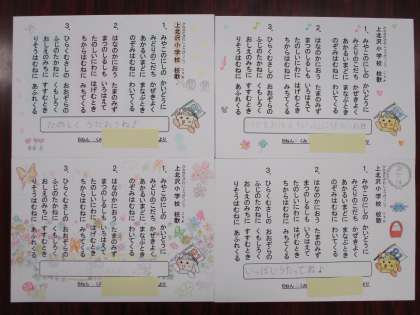 上北沢小学校 校歌
1、みやこのにしの かいどうに
みどりのこだち かぜきよく
あかるいまどに まなぶとき
のぞみはむねに みちてくる
2、はなのかにおう たまのみず
まつのしるしも いろはえて
たのしいにわに はげむとき
ちからはむねに みちてくる
3、ひらくむさしの おおぞらの
ふじのたかねに くもしろく
おしえのみちに すすむとき
りそうはむねに あふれくる
たのしく うたおうね♪
ねん くみ より
上北沢小学校 校歌
1、みやこのにしの かいどうに
みどりのこだち かぜきよく
あかるいまどに まなぶとき
のぞみはむねに みちてくる
2、はなのかにおう たまのみず
まつのしるしも いろはえて
たのしいにわに はげむとき
ちからはむねに みちてくる
3、ひらくむさしの おおぞらの
ふじのたかねに くもしろく
おしえのみちに すすむとき
りそうはむねに あふれくる
ねん くみ
上北沢小学校 校歌
1、みやこのにしの かいどうに
みどりのこだち かぜきよく
あかるいまどに まなぶとき
のぞみはむねに みちてくる
2、はなのかにおう たまのみず
まつのしるしも いろはえて
たのしいにわに はげむとき
ちからはむねに みちてくる
3、ひらくむさしの おおぞらの
ふじのたかねに くもしろく
おしえのみちに すすむとき
りそうはむねに あふれくる
ねん くみ より
上北沢小学校 校歌
1、みやこのにしの かいどうに
みどりのこだち かぜきよく
あかるいまどに まなぶとき
のぞみはむねに みちてくる
2、はなのかにおう たまのみず
まつのしるしも いろはえて
たのしいにわに はげむとき
ちからはむねに みちてくる
3、ひらくむさしの おおぞらの
ふじのたかねに くもしろく
おしえのみちに すすむとき
りそうはむねに あふれくる
いっぱいうたってね♪
ねん くみ より